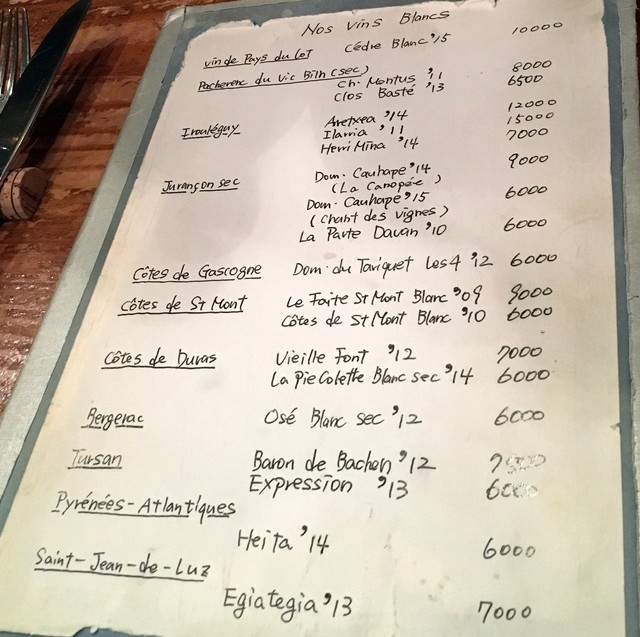 Nos Vins Blancs
Vin de Pays du Lot Cédre Blanc '15 10000
Pacherenc du Vic Bilh (sec)
Ch. Montus '11 8000
Clos Basté '13 6500
Irouléguy Aretxea '14 12000
Ilarria '11 15000
Herri Mina '14 7000
Jurançon sec Dom. Cauhape '14 9000
(La Canopée)
Dom. Cauhape '15 6000
(Chant des vignes)
La Parte Davan '10 6000
Côtes de Gascogne Dom. du Tariquet Les 4 '12 6000
Côtes de St Mont Le Faite St Mont Blanc '09 9000
Côtes de St Mont Blanc '10 6000
Côtes de Duras Vieille Font '12 7000
La Pie Colette Blanc sec '14 6000
Bergerac Osé Blanc sec '12 6000
Tursan Baron de Bachen '12
Expression '13 6000
Pyrénées-Atlantiques
Heita '14 6000
Saint-Jean-de-Luz
Egiategia '13 7000